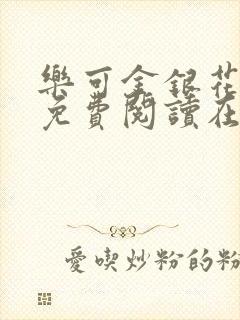 樂可金銀花
免費閱讀在
愛喫炒粉的粉